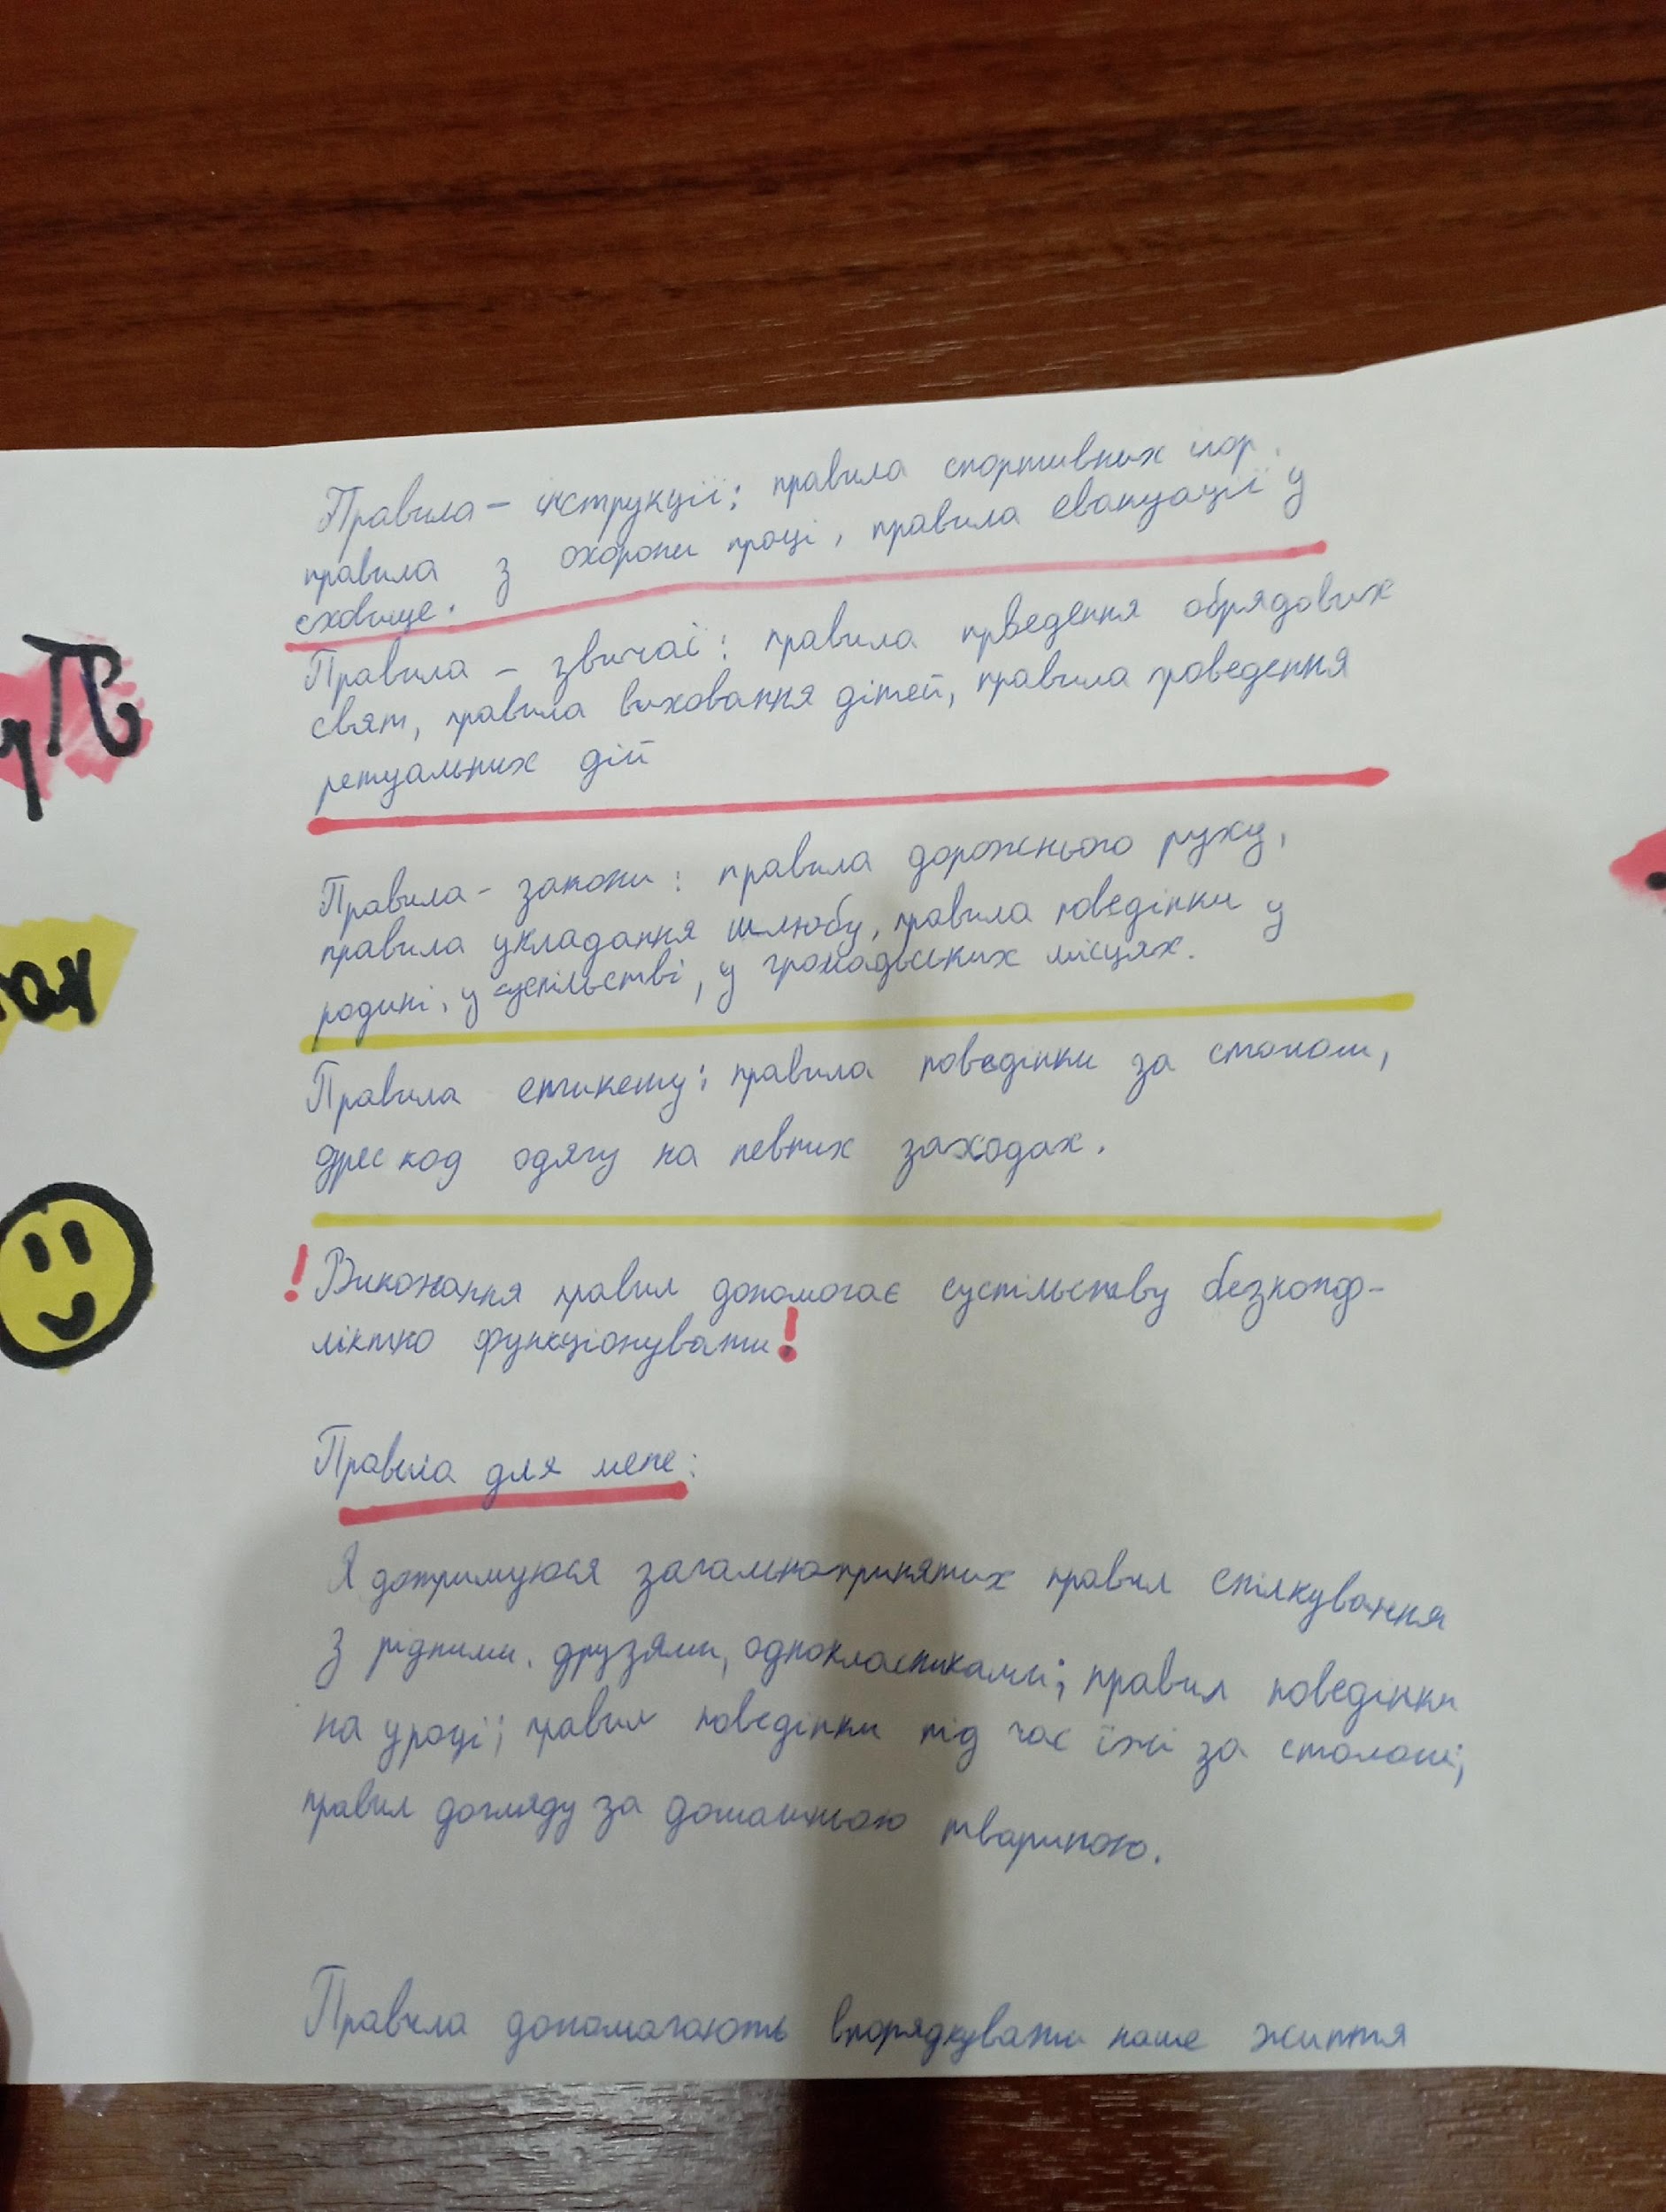 Правила - інструкції: правила спортивних ігор.
правила з охорони праці, правила евакуації у
сховище.
Правила - звичаї: правила прведення обрядових
свят, правила виховання дітей, правила проведення
ретуальних дій
Правила - закони: правила дорожнього руху,
правила укладання шлюбу, правила поведінки у
родині, у суспільстві, у громадських місцях.
Правила етикету: правила поведінки за столом,
дрес код одягу на певних заходах.
! Виконання правил допомогає суспільству безконф-
ліктно функціонувати!
Правила для мене:
Я дотримуюся загальноприйнятих правил спілкування
з рідними, друзями, однокласниками; правил поведінки
на уроці; правил поведінки під час їжі за столом;
правил догляду за домашньою твариною.
Правила допомагають впорядкувати наше життя